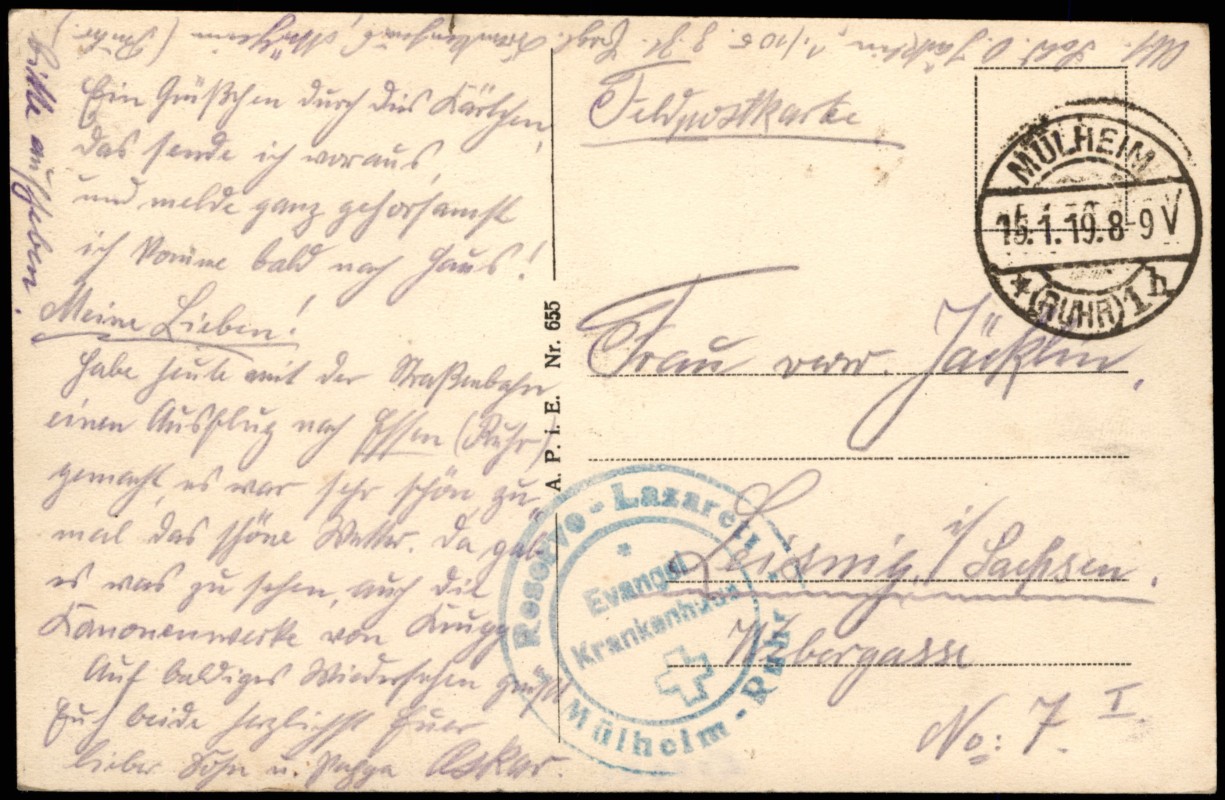 Abs. Sold. O. Jäcklin, 1./105. z. Zt. Evgl. Krankenhaus, Mülheim (Ruhr)
bitte aufheben.
Ein Grüßchen durch dies Kärtchen,
das sende ich voraus,
und melde ganz gehorsamst
ich komme bald nach Haus!
Meine Lieben!
Habe heute mit der Straßenbahn
einen Ausflug nach Essen (Ruhr)
gemacht, es war sehr schön zu-
mal das schöne Wetter. Da gab
es was zu sehen, auch die
Kanonenwerke von Krupp.
Auf baldiges Wiedersehen grüßt
Euch beide herzlichst Euer
lieber Sohn u. Pappa Oskar.
A. P. i. E. Nr. 655
Feldpostkarte
MÜLHEIM
15.1.19.8-9V
*(RUHR)1h
Frau verw. Jäcklin,
Leisnig i/Sachsen.
Webergasse
No: 7. I
Reserve-Lazarett
Evangel.
Krankenhaus
Mülheim-Ruhr